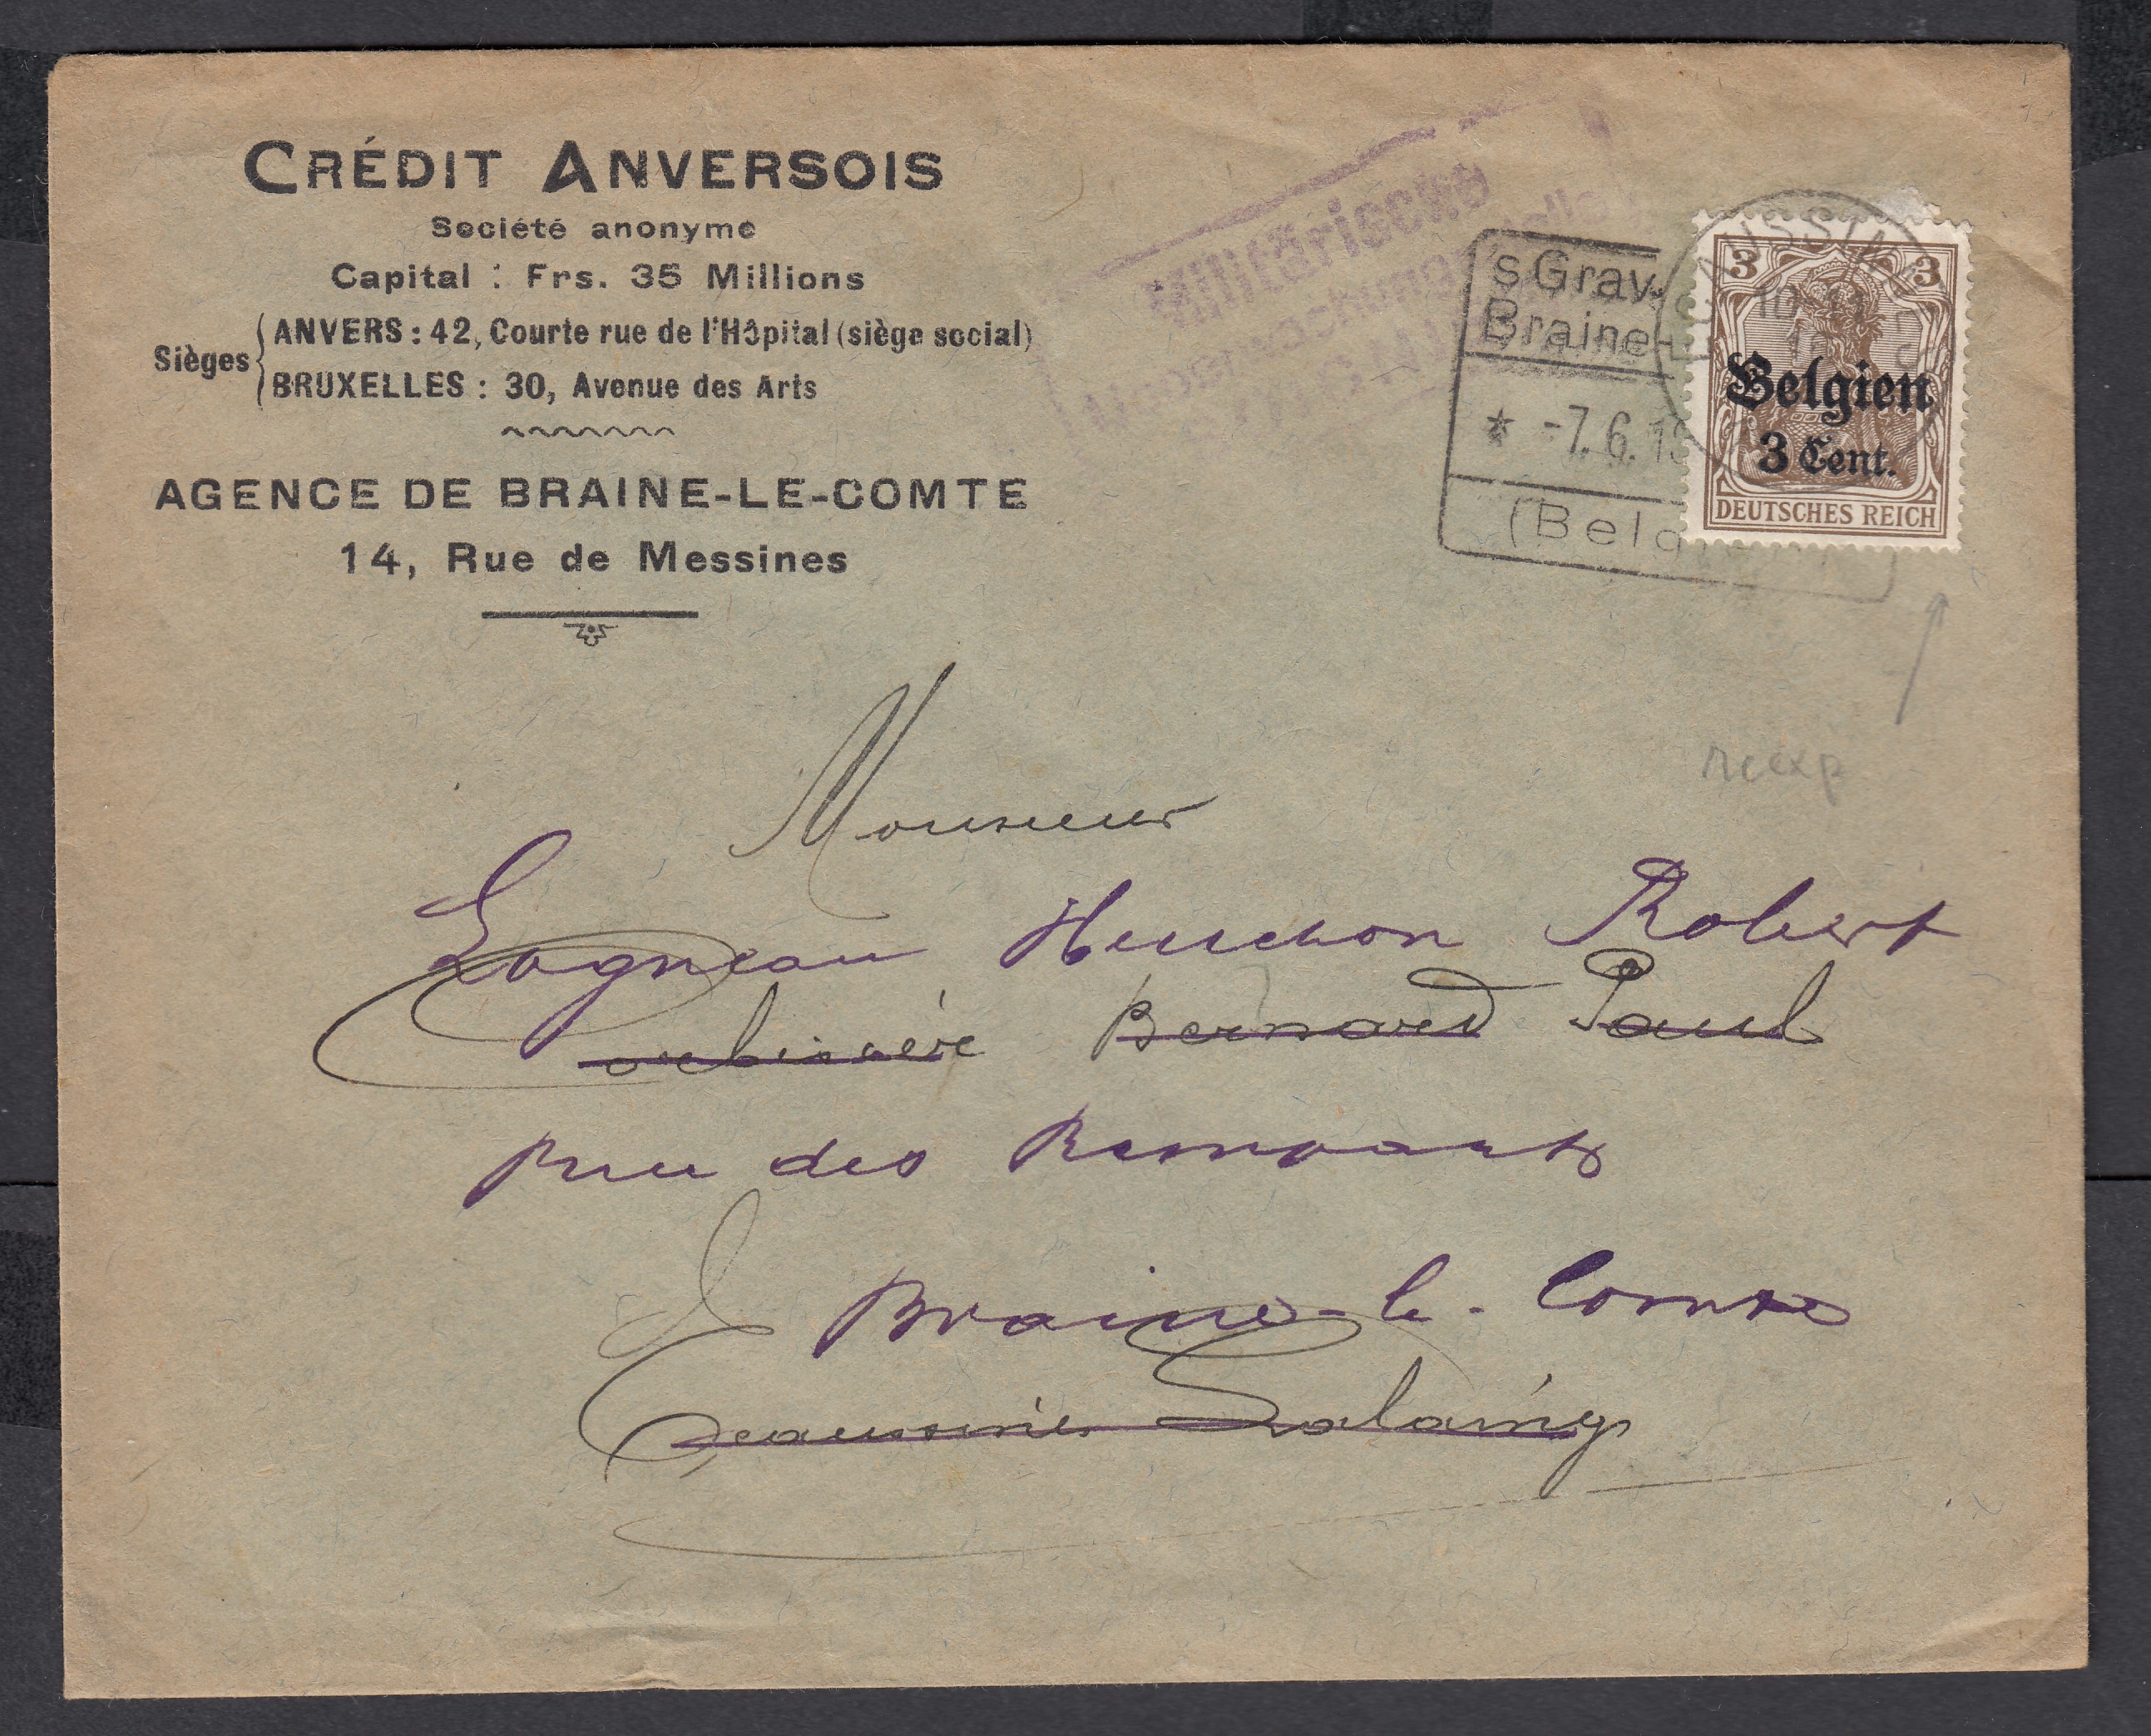 CRÉDIT ANVERSOIS
Société anonyme
Capital : Frs. 35 Millions
Sièges
ANVERS : 42, Courte rue de l'Hôpital (siège social)
BRUXELLES : 30, Avenue des Arts
AGENCE DE BRAINE-LE-COMTE
14, Rue de Messines
Militärische
's Grav-
Braine-L
* -7.6.1
(Belgien)
3 3
Belgien
3 Cent.
DEUTSCHES REICH
Monsieur
Robert
Bernard Paul
rue des Remparts
Braine-le-Comte
Ecaussines Lalaing